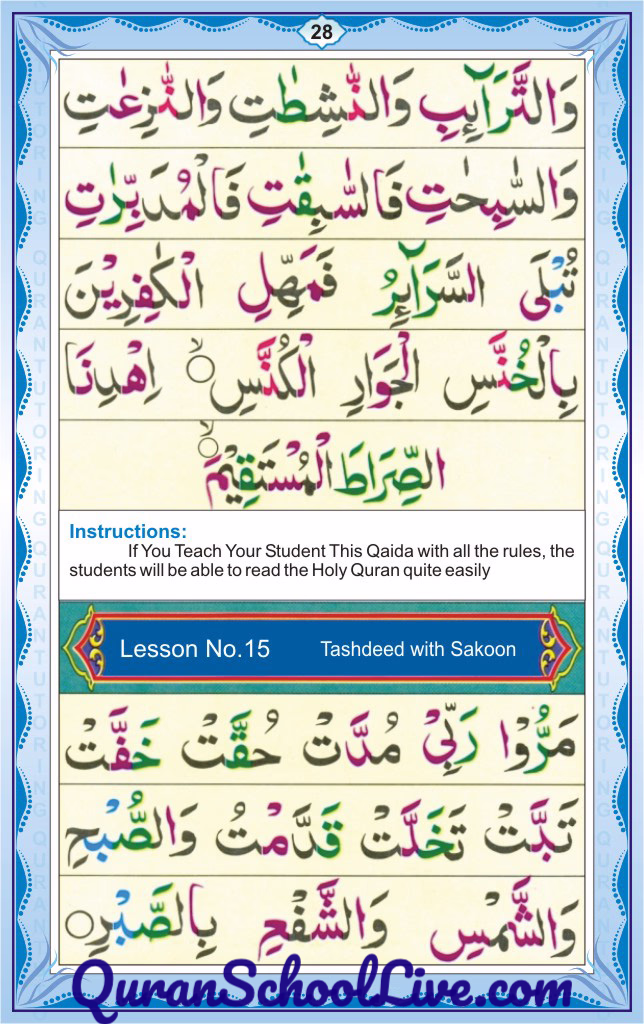 28
وَالتَّرَآئِبِ وَالنّٰشِطٰتِ وَالنّٰزِعٰتِ
وَالسّٰبِحٰتِ فَالسّٰبِقٰتِ فَالْمُدَبِّرٰتِ
تُبْلَى السَّرَآئِرُ فَمَهِّلِ الْكٰفِرِيْنَ
بِالْخُنَّسِ الْجَوَارِ الْكُنَّسِ ۙ اِهْدِنَا
الصِّرَاطَ الْمُسْتَقِيْمَ ۙ
Instructions:
If You Teach Your Student This Qaida with all the rules, the
students will be able to read the Holy Quran quite easily
Lesson No.15 Tashdeed with Sakoon
مَرُّوْا رَبِّىْ مُدَّتْ حُقَّتْ خَفَّتْ
تَبَّتْ تَخَلَّتْ قَدَّمْتُ وَالصُّبْحِ
وَالشَّمْسِ وَالشَّفْعِ بِالصَّبْرِ ۝
QuranSchoolLive.com
QURANTUTORING